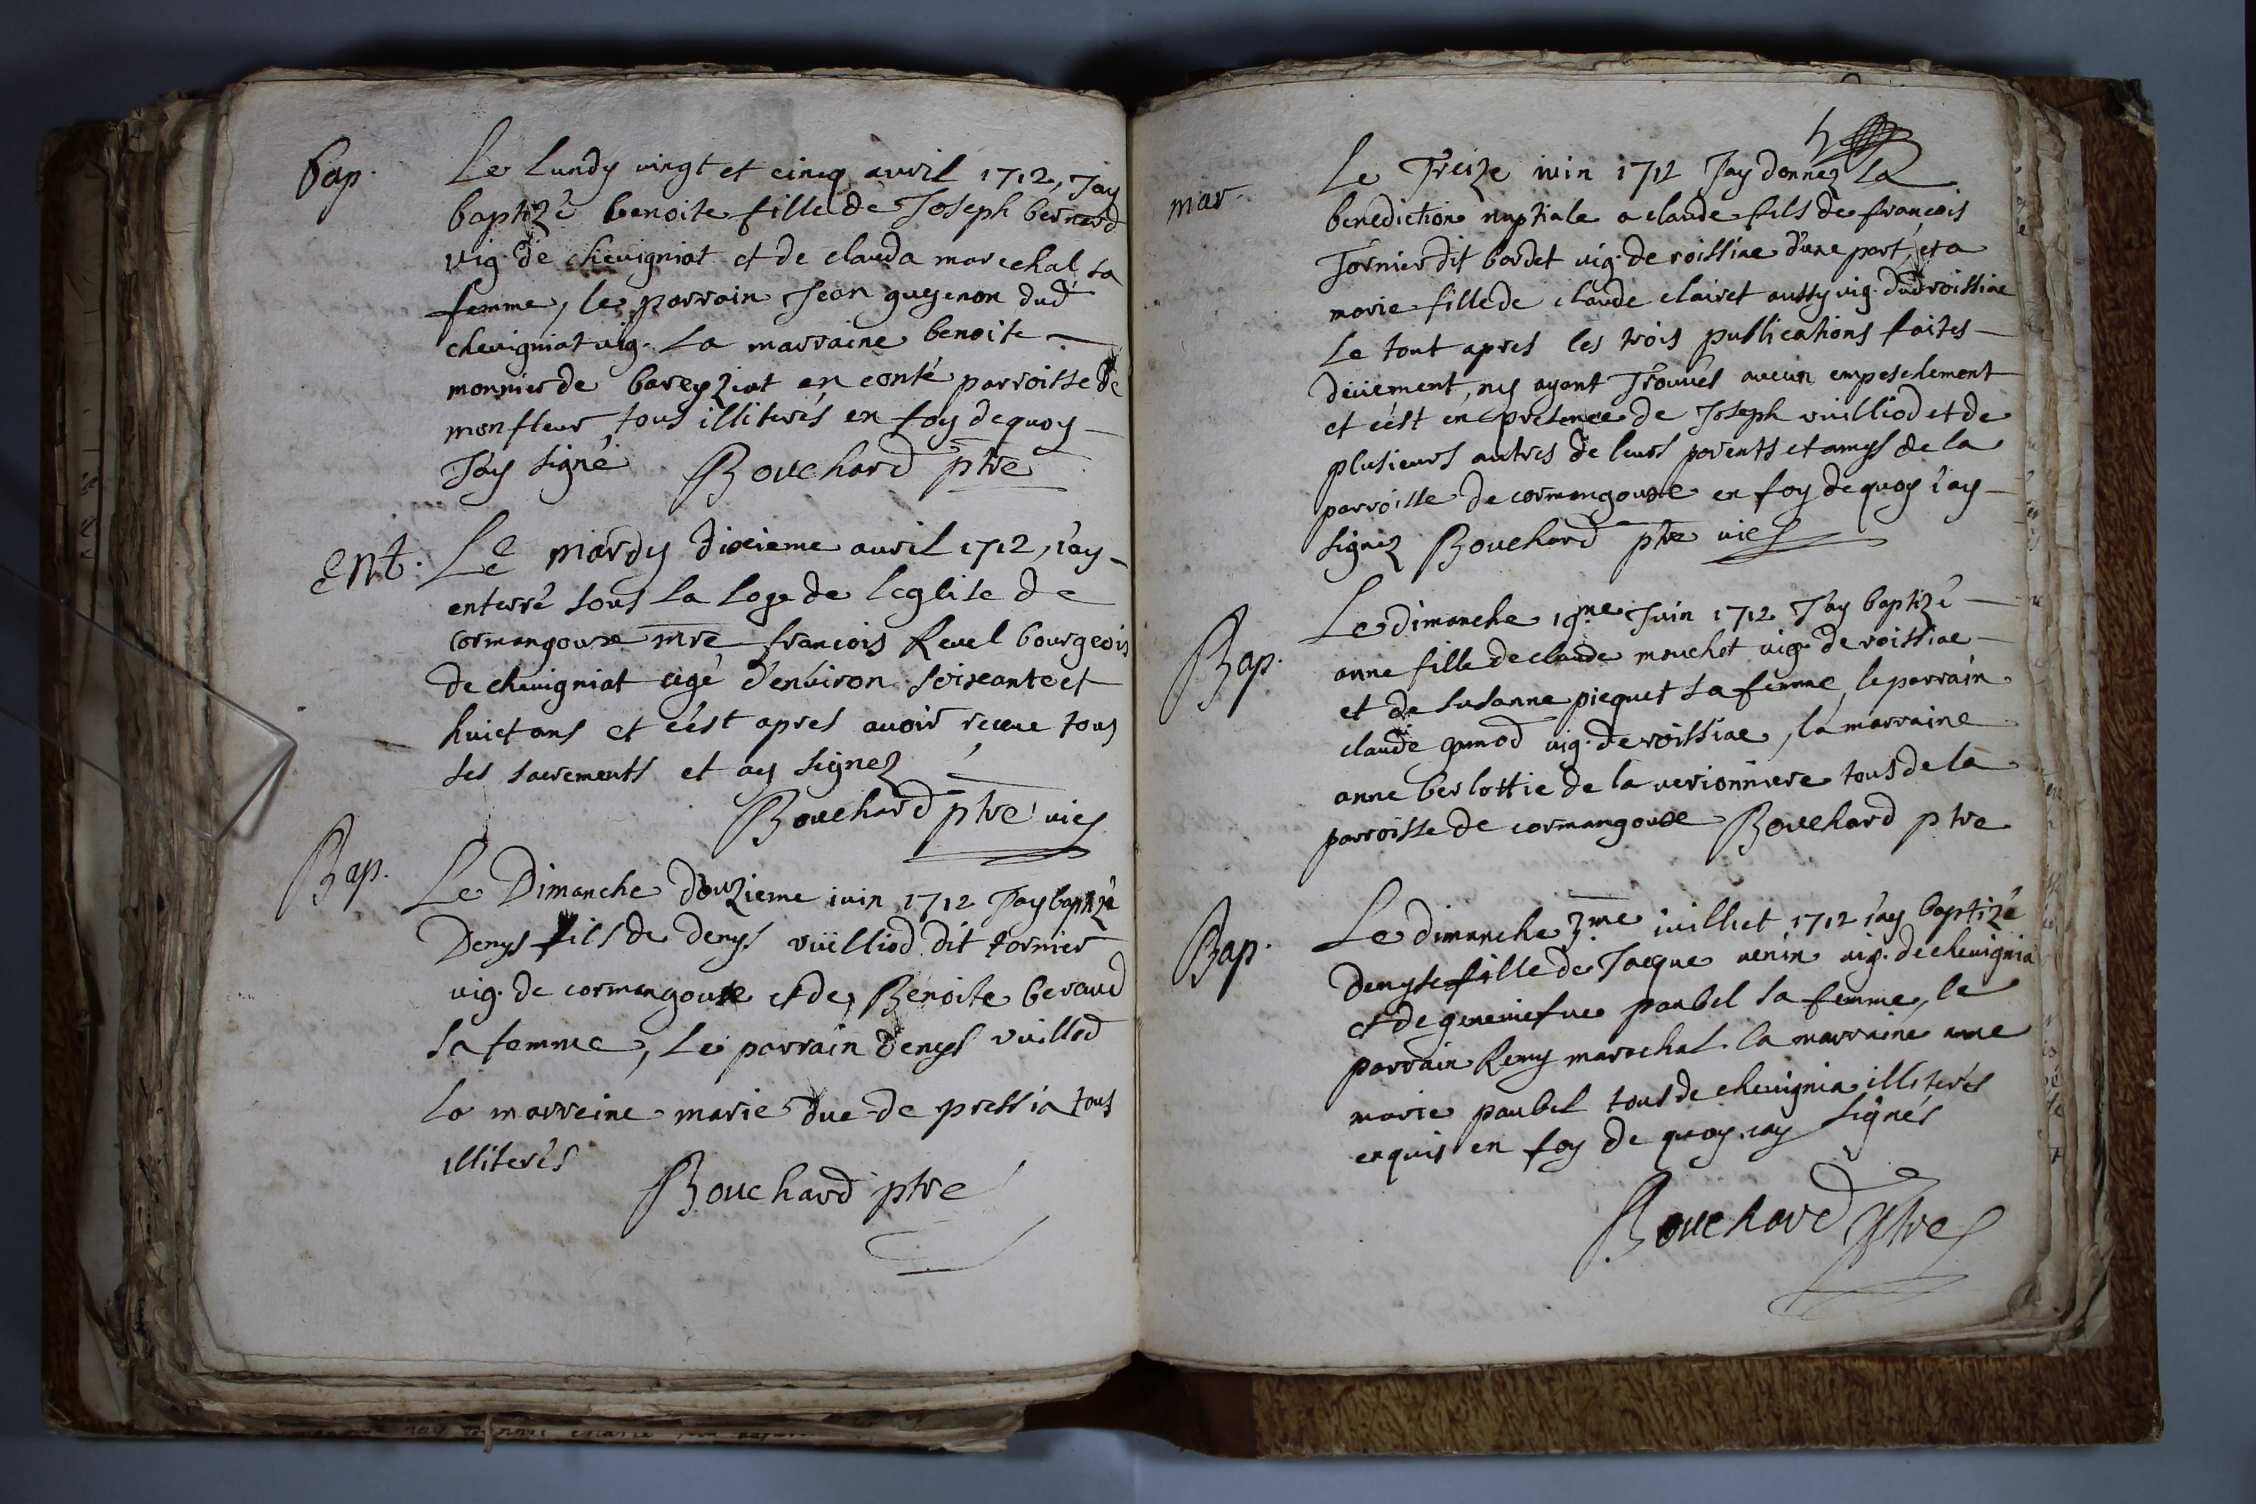 Bap.
Le Lundy vingt et cinq avril 1712, Jay
baptizé benoite fille de Joseph bernard
vig. de chevigniat et de clauda marechal sa
femme, le parrain Jean guyenon dud
chevigniat vig. La marraine benoite
monnier de bareyziat en conté parroisse de
monfleur, tous illiterés en foy dequoy
Jay signé Bouchard ptre
Ent.
Le mardy dixieme avril 1712, j'ay
enterré sous la loge de leglise de
cormangouxe mre francois Revel bourgeois
de chevigniat agé d'environ soixante et
huict ans et cést apres avoir receue tous
ses sacrements et ay signez
Bouchard ptre vic
Bap.
Le Dimanche douzieme iuin 1712 Jay baptizé
Denys fils de denys vuilliod dit tornier
vig. de cormangouxe et de Benoite beraud
sa femme, Le parrain denys vuillod
La marreine marie due de pressia tous
illiterés
Bouchard ptre
mar.
Le Treize iuin 1712 Jay donnez la
benediction nuptiale a claude fils de francois
Tornier dit bordet vig. de roissiae d'une part, et a
marie fille de claude clairet aussy vig. dud roissiae
Le tout apres les trois publications faites
deüement, ny ayant Trouvés aucun empeschement
et cést en presence de Joseph vuilliod et de
plusieurs autres de leurs parents et amys de la
parroisse de cormangouxe en foy dequoy i'ay
signez Bouchard ptre vic
Bap.
Le dimanche 19.me Juin 1712 Jay baptizé
anne fille de claude mouchot vig. de roissiae
et de susanne picquet sa femme, le parrain
claude gamod vig. de roissiae, la marraine
anne berlottie de la verionniere tous de la
parroisse de cormangouxe Bouchard ptre
Bap.
Le dimanche 3.me iuilliet 1712 i'ay baptizé
denyse fille de Jacque venin vig. de chevignia
et de geneviefve paubel sa femme, le
parrain Remy marechal la marraine anne
marie paubel tous de chevignia illiterés
enquis en foy de quoy iay signés
Bouchard ptre